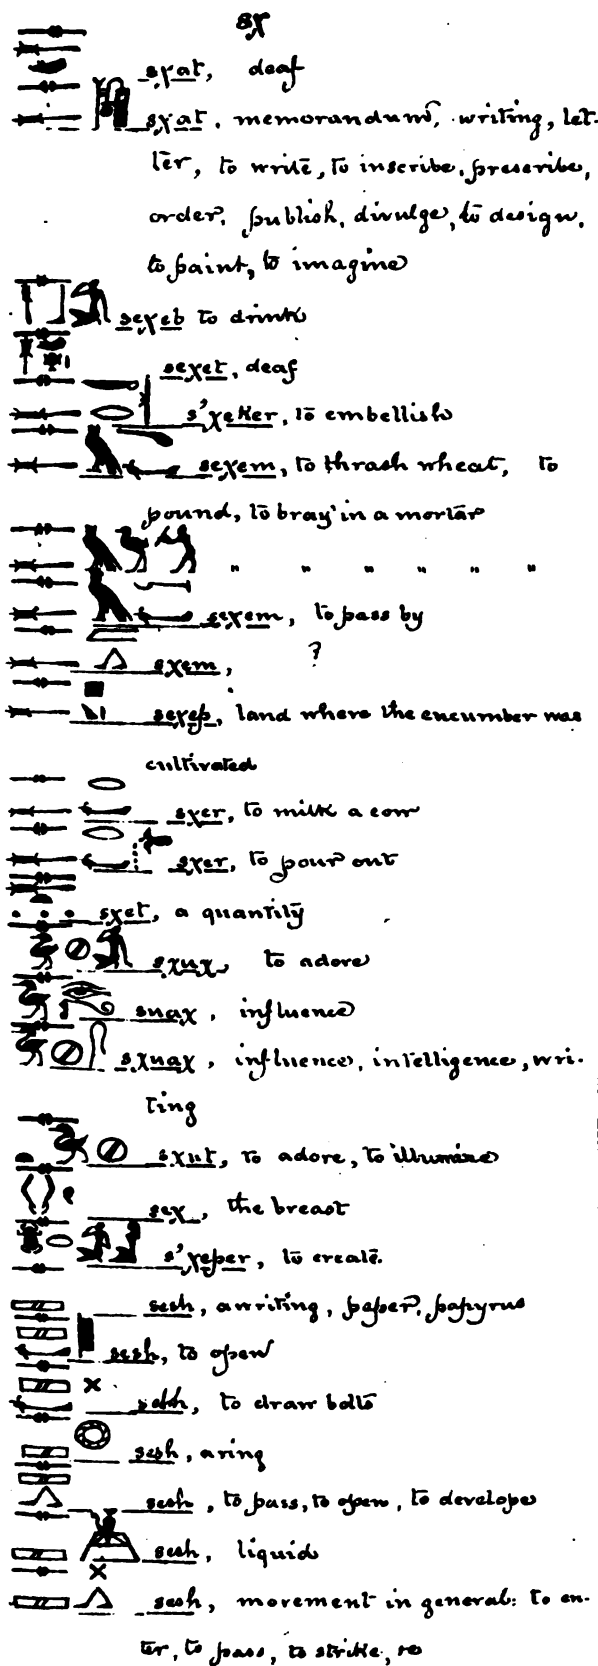 sχ
sχat, deaf
sχat, memorandum, writing, let-
ter, to write, to inscribe, prescribe,
order, publish, divulge, to design,
to paint, to imagine
seχeb to drink
seχet, deaf
s'χeker, to embellish
seχem, to thrash wheat, to
pound, to bray in a mortar
" " " " " "
seχem, to pass by
sχem, ?
seχep, land where the cucumber was
cultivated
sχer, to milk a cow
sχer, to pour out
sχet, a quantity
sχuχ, to adore
suaχ, influence
sχuaχ, influence, intelligence, wri-
ting
sχut, to adore, to illumine
seχ, the breast
s'χeper, to create.
sesh, a writing, paper, papyrus
sesh, to open
sesh, to draw bolts
sesh, a ring
sesh, to pass, to open, to develope
sesh, liquid
sesh, movement in general: to en-
ter, to pass, to strike,